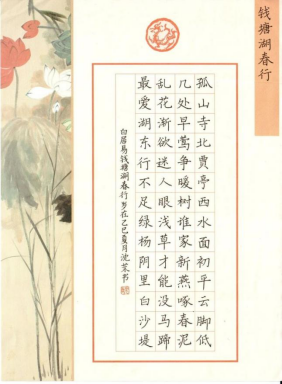 钱塘湖春行
孤山寺北贾亭西水面初平云脚低
几处早莺争暖树谁家新燕啄春泥
乱花渐欲迷人眼浅草才能没马蹄
最爱湖东行不足绿杨阴里白沙堤
白居易钱塘湖春行岁在乙巳夏月沈荣书